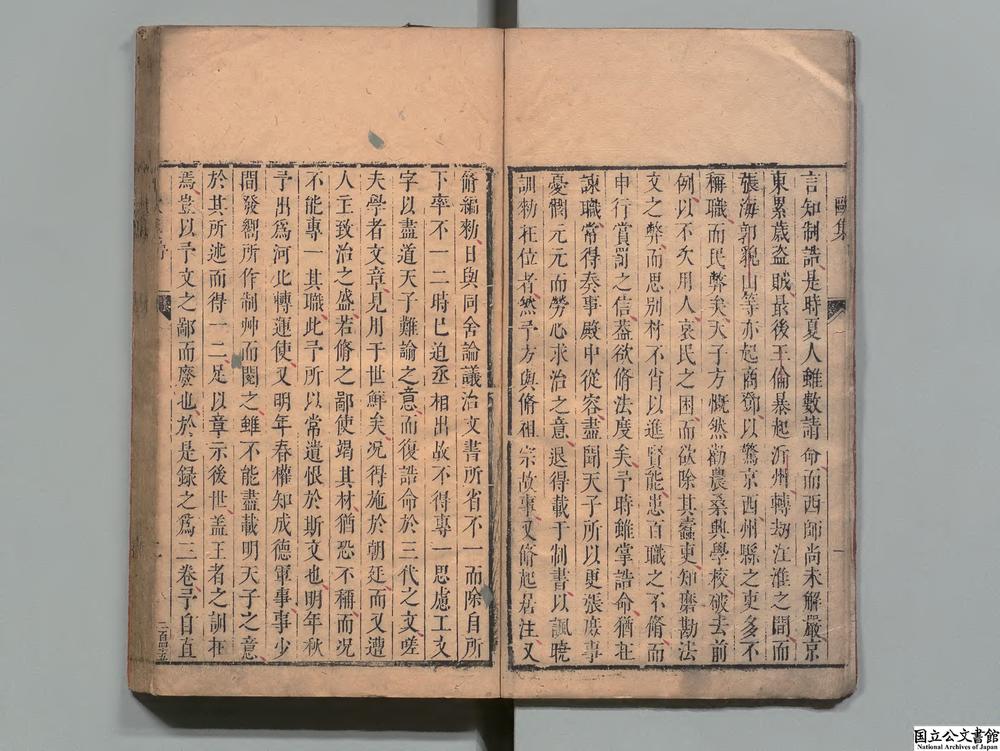 歐集
言知制誥是時夏人雖數請命而西師尚未解嚴京
東累歲盜賊最後王倫暴起沂州轉刼江淮之間而
張海郭貌山等亦起商鄧以驚京西州縣之吏多不
稱職而民弊矣天子方慨然勸農桑興學校破去前
例以不次用人哀民之困而欲除其蠹吏知磨勘法
文之弊而思別材不肖以進賢能患百職之不脩而
申行賞罰之信葢欲脩法度矣予時雖掌誥命猶在
諫職常得奏事殿中從容盡聞天子所以更張庶事
憂憫元元而勞心求治之意退得載于制書以諷曉
訓勑在位者然予方與脩祖宗故事又脩起居注又
脩編勑日與同舍論議治文書所省不一而除目所
下率不一二時已迫丞相出故不得專一思慮工文
字以盡道天子難諭之意而復誥命於三代之文嗟
夫學者文章見用于世鮮矣况得施於朝廷而又遭
人主致治之盛若脩之鄙使竭其材猶恐不稱而况
不能專一其職此予所以常遺恨於斯文也明年秋
予出爲河北轉運使又明年春權知成德軍事事少
間發嚮所作制艸而閱之雖不能盡載明天子之意
於其所述而得一二足以章示後世盖王者之訓在
焉豈以予文之鄙而廢也於是録之爲三卷予自直
二百四十五
国立公文書館
National Archives of Japan